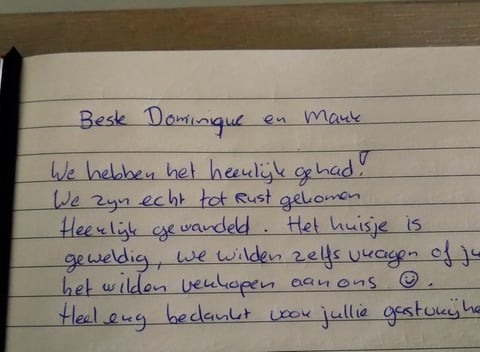 Beste Dominique en Mark
We hebben het heerlijk gehad!
We zijn echt tot Rust gekomen
Heerlijk gewandeld. Het huisje is
geweldig, we wilden zelfs vragen of ju
het wilden verkopen aan ons ☺.
Heel erg bedankt voor jullie gastvrijhe